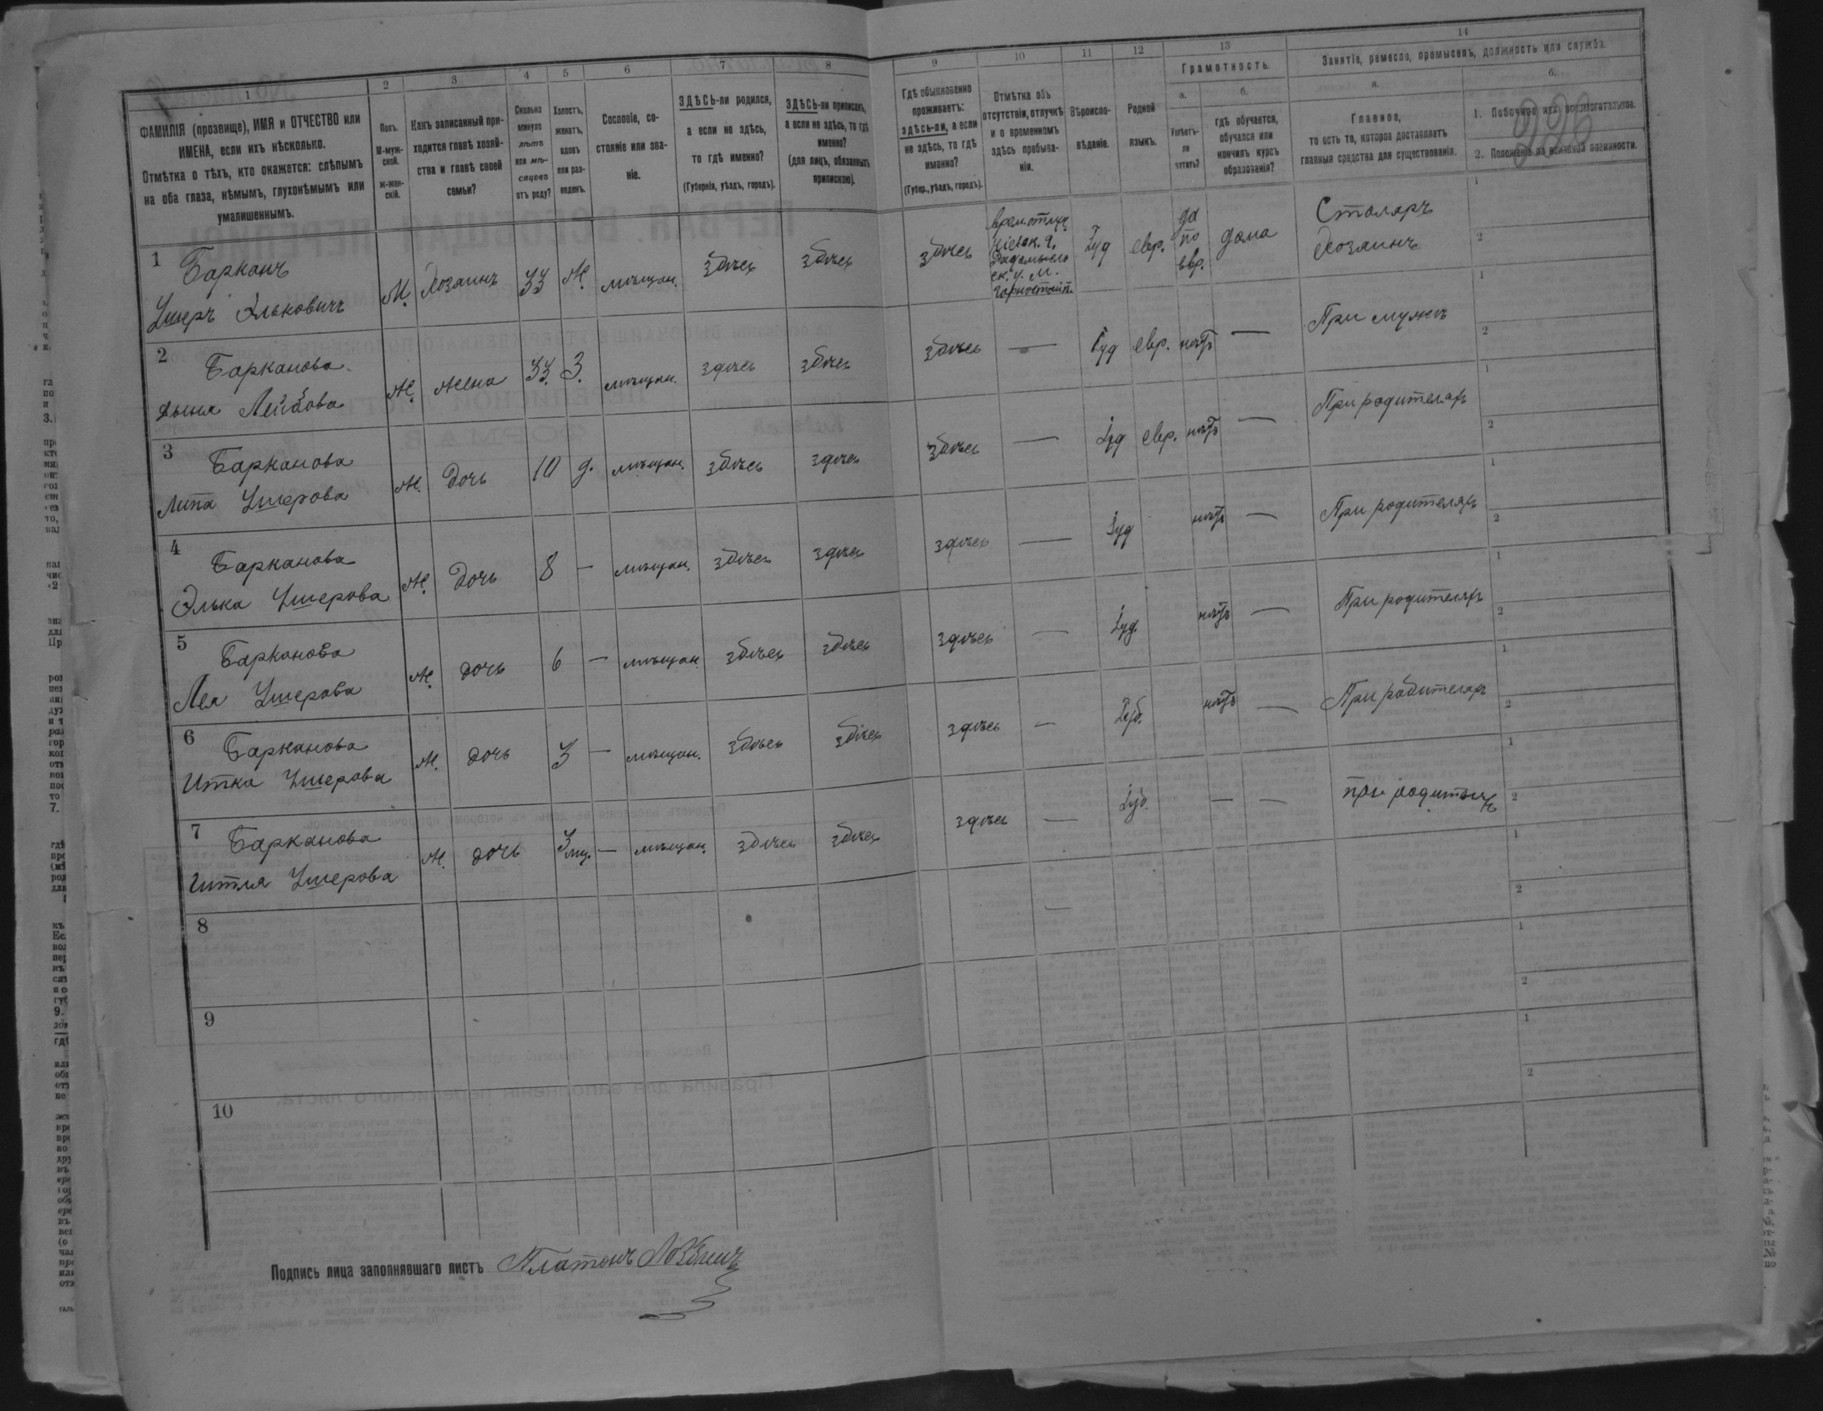 1 2 3 4 5 6 7 8 9 10 11 12 13 14
ФАМИЛІЯ (прозвище), ИМЯ и ОТЧЕСТВО или
ИМЕНА, если ихъ нѣсколько.
Отмѣтка о тѣхъ, кто окажется: слѣпымъ
на оба глаза, нѣмымъ, глухонѣмымъ или
умалишеннымъ.
Полъ.
М-муж-
ской.
Ж-жен-
скій.
Какъ записанный при-
ходится главѣ хозяй-
ства и главѣ своей
семьи?
Сколько
минуло
лѣтъ
или мѣ-
сяцевъ
отъ роду?
Холостъ,
женатъ,
вдовъ
или раз-
веденъ.
Сословіе, со-
стояніе или зва-
ніе.
ЗДѢСЬ-ли родился,
а если не здѣсь,
то гдѣ именно?
(Губернія, уѣздъ, городъ).
ЗДѢСЬ-ли приписанъ,
а если не здѣсь, то гдѣ
именно?
(для лицъ, обязанныхъ
припискою).
Гдѣ обыкновенно
проживаетъ:
здѣсь-ли, а если
не здѣсь, то гдѣ
именно?
(Губер., уѣздъ, городъ).
Отмѣтка объ
отсутствіи, отлучкѣ
и о временномъ
здѣсь пребыва-
ніи.
Вѣроиспо-
вѣданіе.
Родной
языкъ.
Грамотность.
а. б.
Умѣетъ-
ли
читать?
гдѣ обучается,
обучался или
кончилъ курсъ
образованія?
Занятіе, ремесло, промыселъ, должность или служба.
а. б.
Главное,
то есть то, которое доставляетъ
главныя средства для существованія.
1. Побочное или вспомогательное.
2. Положеніе по воинской повинности.
226
1 Барканъ
Ушеръ Эльковичъ М. Хозяинъ 33 Ж. мѣщан. здѣсь здѣсь здѣсь
Іуд евр. да
по
евр. дома Столяръ
Хозяинъ
2 Барканова
Лейбова Ж. жена 33 З. мѣщан. здѣсь здѣсь здѣсь — Іуд евр. нѣтъ — При мужѣ
3 Барканова
Липа Ушерова Ж. дочь 10 д. мѣщан. здѣсь здѣсь здѣсь — Іуд евр. нѣтъ — При родителяхъ
4 Барканова
Элька Ушерова Ж. дочь 8 — мѣщан. здѣсь здѣсь здѣсь — Іуд нѣтъ — При родителяхъ
5 Барканова
Лея Ушерова Ж. дочь 6 — мѣщан здѣсь здѣсь здѣсь — Іуд. нѣтъ — При родителяхъ
6 Барканова
Итка Ушерова Ж. дочь 3 — мѣщан. здѣсь здѣсь здѣсь — Іуд. нѣтъ — При родителяхъ
7 Барканова
Гитля Ушерова Ж. дочь 3 мц. — мѣщан. здѣсь здѣсь здѣсь — Іуд. — — при родителяхъ
8 —
9
10
Подпись лица заполнявшаго листъ Платонъ